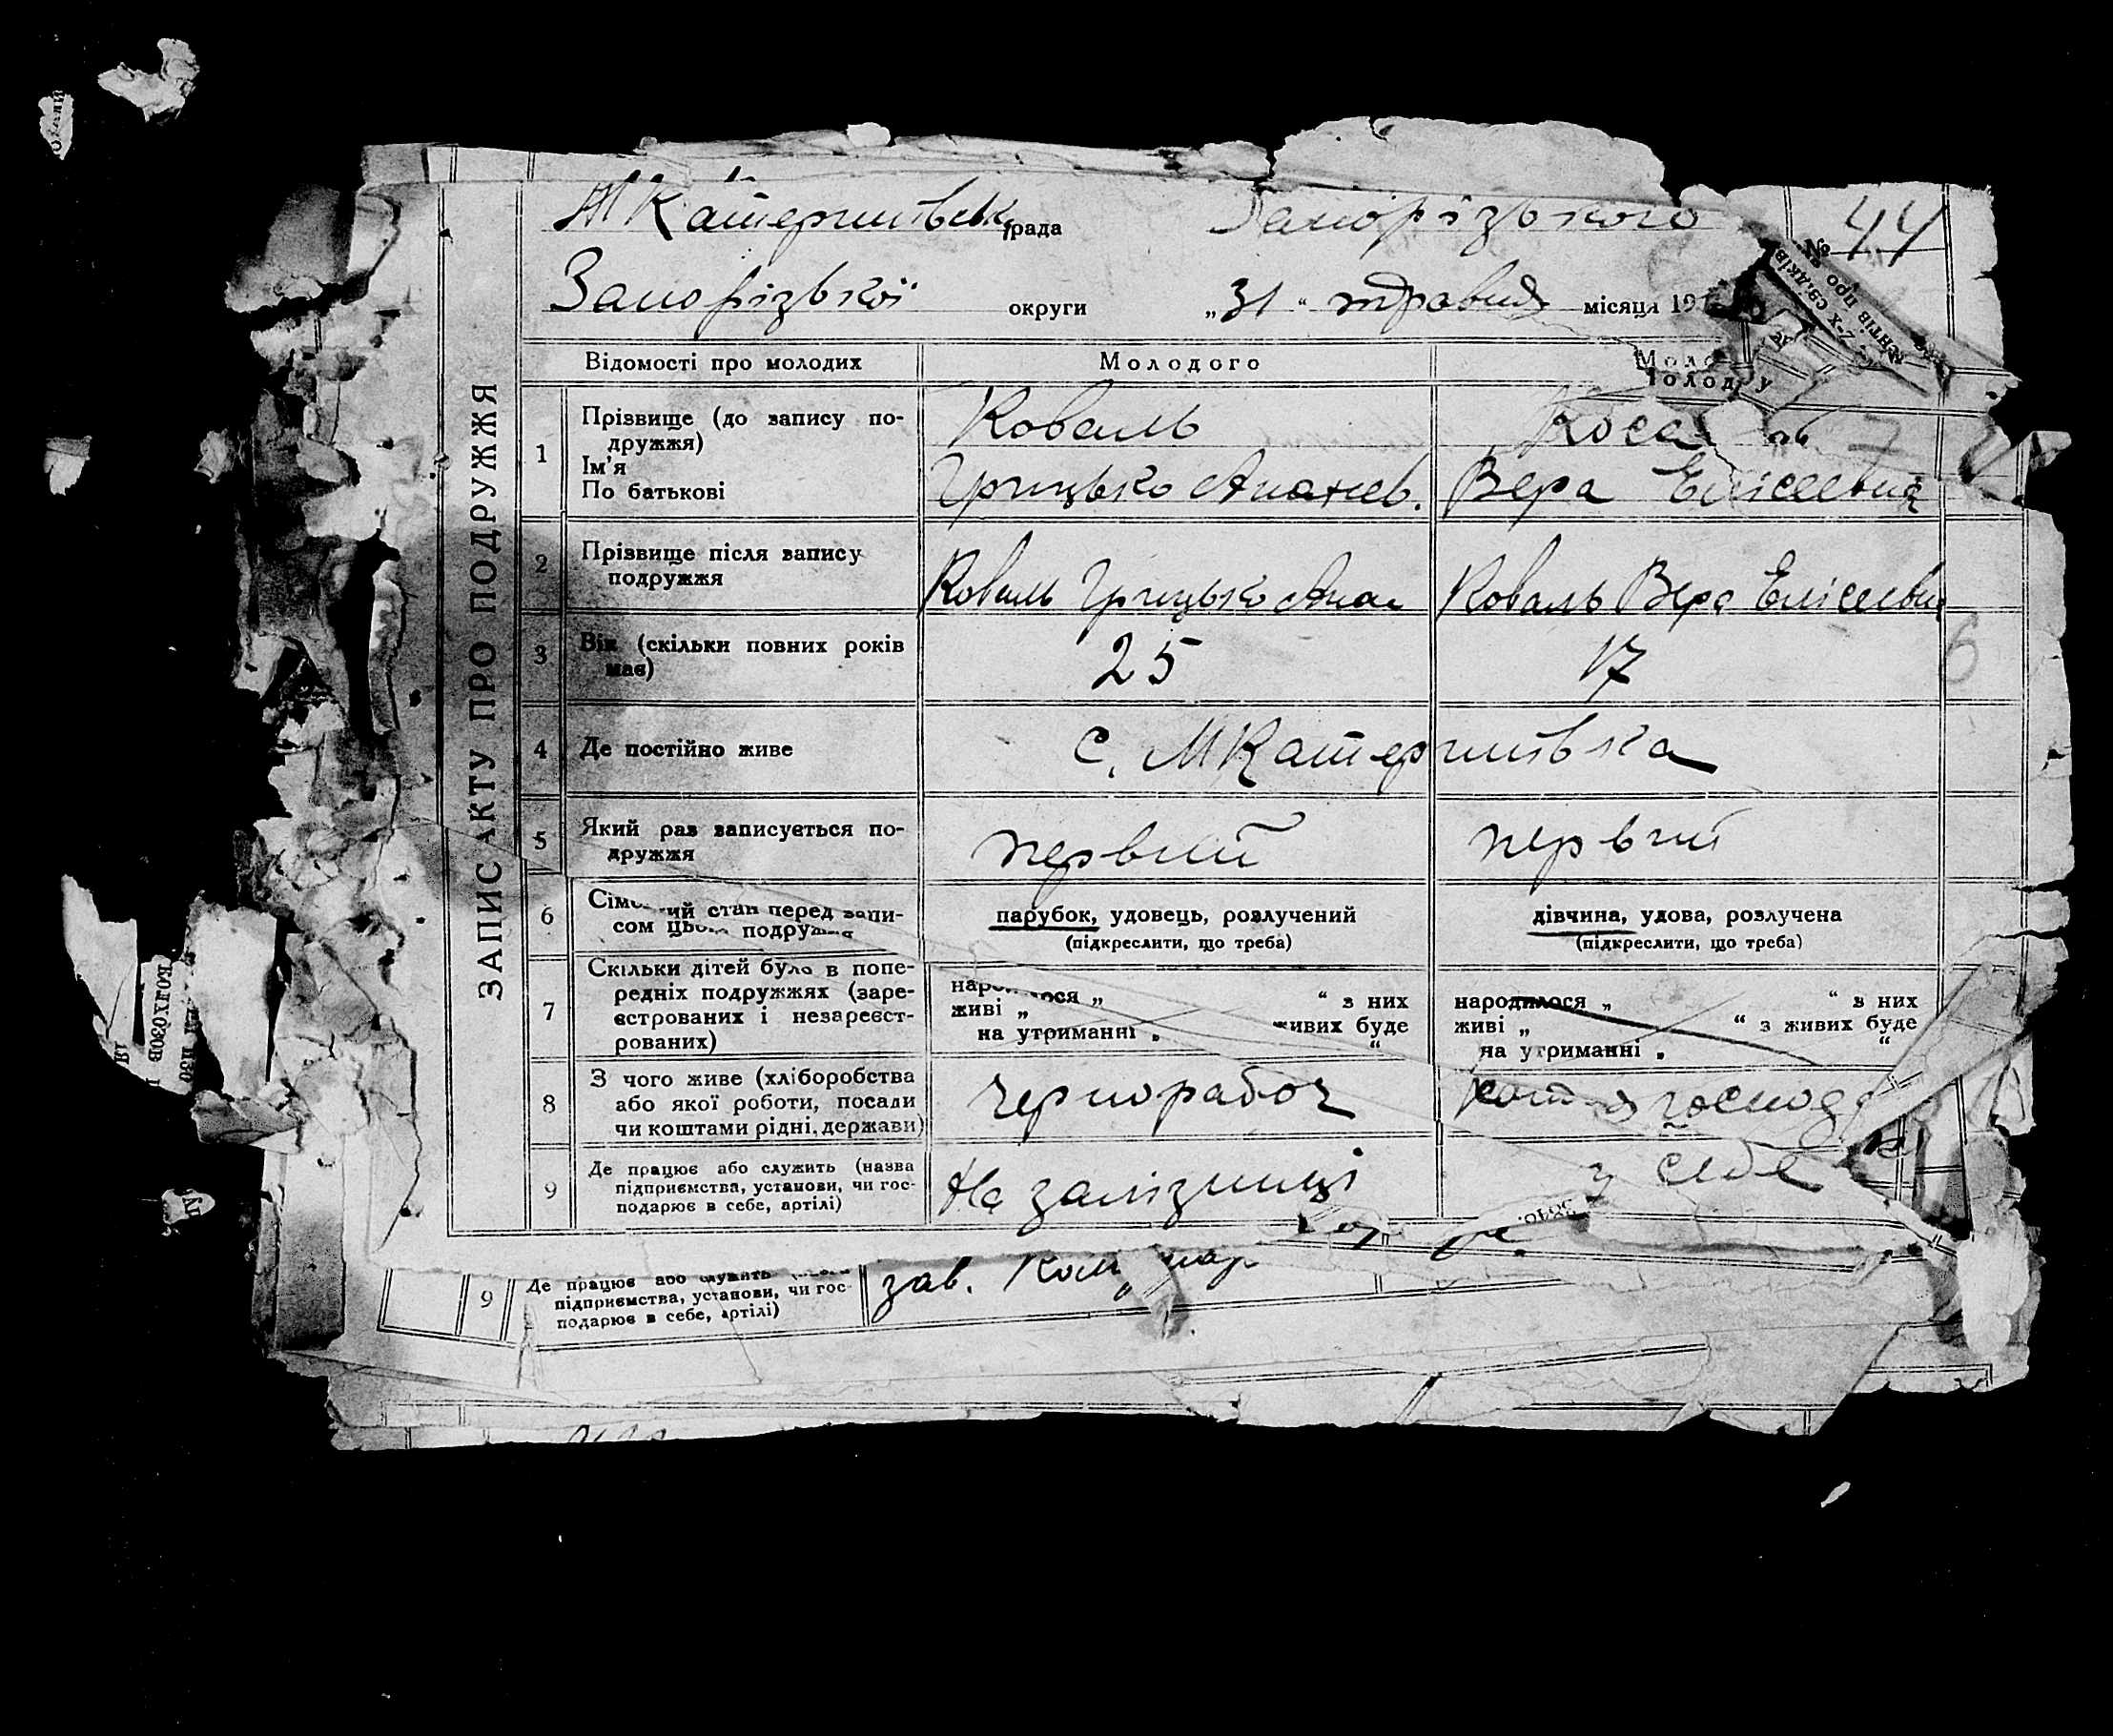 МКатеринівськ рада Запорізького 44
Запорізької округи „31“ травня місяця 19
ЗАПИС АКТУ ПРО ПОДРУЖЖЯ
Відомості про молодих Молодого
1 Прізвище (до запису по-
дружжя)
Ім'я
По батькові
Коваль
Грицько Ананєв. Вера Елісеевна
2 Прізвище після запису
подружжя
Коваль Грицько Анан Коваль Вера Елісеевн
3 Вік (скільки повних років
має)
25 17
6
4 Де постійно живе с. МКатеринівка
5 Який раз записується по-
дружжя
первий первий
6 стан перед запи-
сом цього подружжя
парубок, удовець, розлучений
(підкреслити, що треба)
дівчина, удова, розлучена
(підкреслити, що треба)
7 Скільки дітей було в попе-
редніх подружжях (заре-
єстрованих і незареєст-
рованих)
народилося „ “ з них
живі „ живих буде
на утриманні „ “
народилося „ “ з них
живі „ “ з живих буде
на утриманні „ “
8 З чого живе (хліборобства
або якої роботи, посади
чи коштами рідні, держави)
чернорабоч
9 Де працює або служить (назва
підприємства, установи, чи гос-
подарює в себе, артілі)
На залізниці у себе
9 Де працює або служить
підприємства, установи, чи гос-
подарює в себе, артілі)
зав.
колхозов